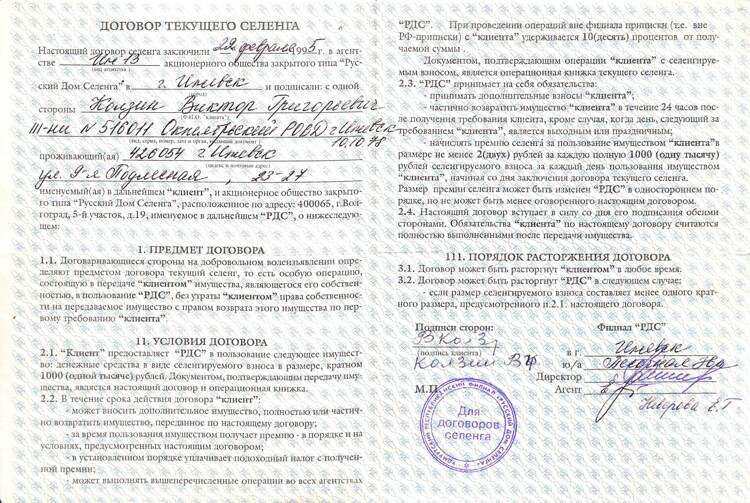 ДОГОВОР ТЕКУЩЕГО СЕЛЕНГА
Настоящий договор селенга заключили 22 февраля 1995 г. в агент-
стве Ин 13 акционерного общества закрытого типа “Рус-
(код агентства)
ский Дом Селенга” в г. Ижевск и подписали: с одной
стороны Колзин Виктор Григорьевич
(Ф.И.О. “клиента”)
III-ни N 516011 Октябрьский РОВД г Ижевск
10.10.78
проживающий(ая) 426054 г Ижевск
(индекс и почтовый адрес)
ул. 9-я Подлесная 23-27
именуемый(ая) в дальнейшем “клиент”, и акционерное общество закрыто-
го типа “Русский Дом Селенга”, расположенное по адресу: 400065, г.Вол-
гоград, 5-й участок, д.19, именуемое в дальнейшем “РДС”, о нижеследу-
ющем:
1. ПРЕДМЕТ ДОГОВОРА
1.1. Договаривающиеся стороны на добровольном волеизъявлении опре-
деляют предметом договора текущий селенг, то есть особую операцию,
состоящую в передаче “клиентом” имущества, являющегося его собствен-
ностью, в пользование “РДС”, без утраты “клиентом” права собственнос-
ти на передаваемое имущество с правом возврата этого имущества по пер-
вому требованию “клиента”.
11. УСЛОВИЯ ДОГОВОРА
2.1. “Клиент” предоставляет “РДС” в пользование следующее имущест-
во: денежные средства в виде селенгируемого взноса в размере, кратном
1000 (одной тысяче) рублей. Документом, подтверждающим передачу иму-
щества, является настоящий договор и операционная книжка.
2.2. В течение срока действия договора “клиент”:
- может вносить дополнительное имущество, полностью или частич-
но возвратить имущество, переданное по настоящему договору;
- за время пользования имуществом получает премию - в порядке и на
условиях, предусмотренных настоящим договором;
- в установленном порядке уплачивает подоходный налог с получен-
ной премии;
- может выполнять вышеперечисленные операции во всех агентствах
“РДС”. При проведении операций вне филиала приписки (т.е. вне
РФ-приписки) с “клиента” удерживается 10(десять) процентов от по-
лучаемой суммы.
Документом, подтверждающим операции “клиента” с селенгируе-
мым взносом, является операционная книжка текущего селенга.
2.3. “РДС” принимает на себя обязательства:
- принимать дополнительные взносы “клиента”;
- частично возвратить имущество “клиента” в течение 24 часов пос-
ле получения требования клиента, кроме случая, когда день, следующий за
требованием “клиента”, является выходным или праздничным;
- начислять премию селенга за пользование имуществом “клиента”в
размере не менее 2(двух) рублей за каждую полную 1000 (одну тысячу)
рублей селенгируемого взноса за каждый день пользования имуществом
“клиента”, начиная со дня заключения договора текущего селенга.
Размер премии селенга может быть изменен “РДС” в одностороннем по-
рядке, но не может быть менее оговоренного настоящим договором.
2.4. Настоящий договор вступает в силу со дня его подписания обеими
сторонами. Обязательства “клиента” по настоящему договору считаются
полностью выполненными после передачи имущества.
111. ПОРЯДОК РАСТОРЖЕНИЯ ДОГОВОРА
3.1. Договор может быть расторгнут “клиентом” в любое время.
3.2. Договор может быть расторгнут “РДС” в следующем случае:
- если размер селенгируемого взноса составляет менее одного крат-
ного размера, предусмотренного п.2.1. настоящего договора.
Подписи сторон: Филиал “РДС”
ВКолз
(подпись клиента)
Колзин ВГ
М.П.
в г. Ижевск
ю/а
Директор
Агент
Неверова Е.Г
Для
договоров
селенга